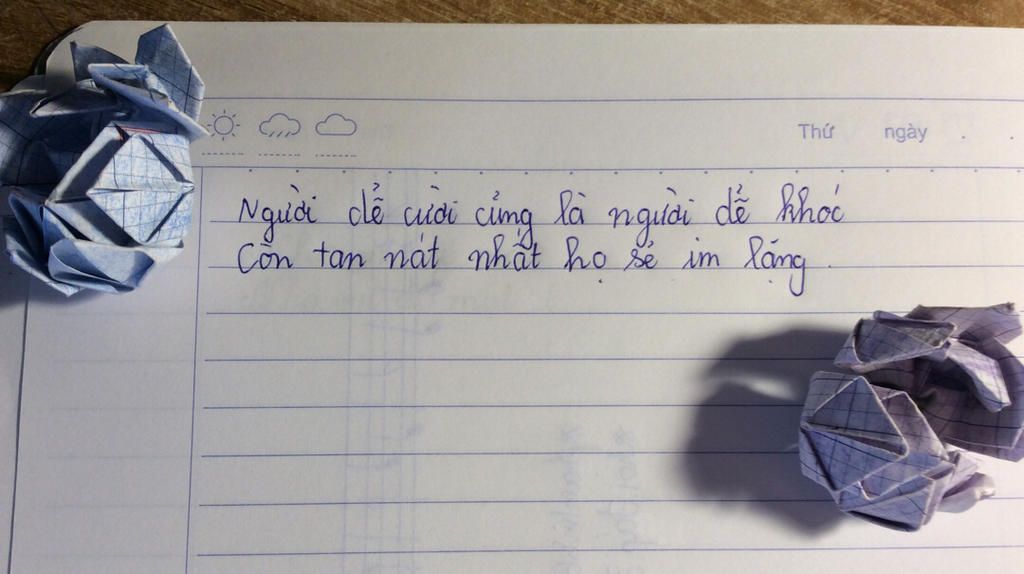 Thứ ngày . .
Người dễ cười cũng là người dễ khóc
Còn tan nát nhất họ sẽ im lặng.